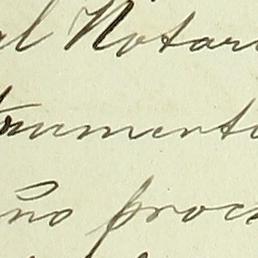 al Notari
trumento
ño proc